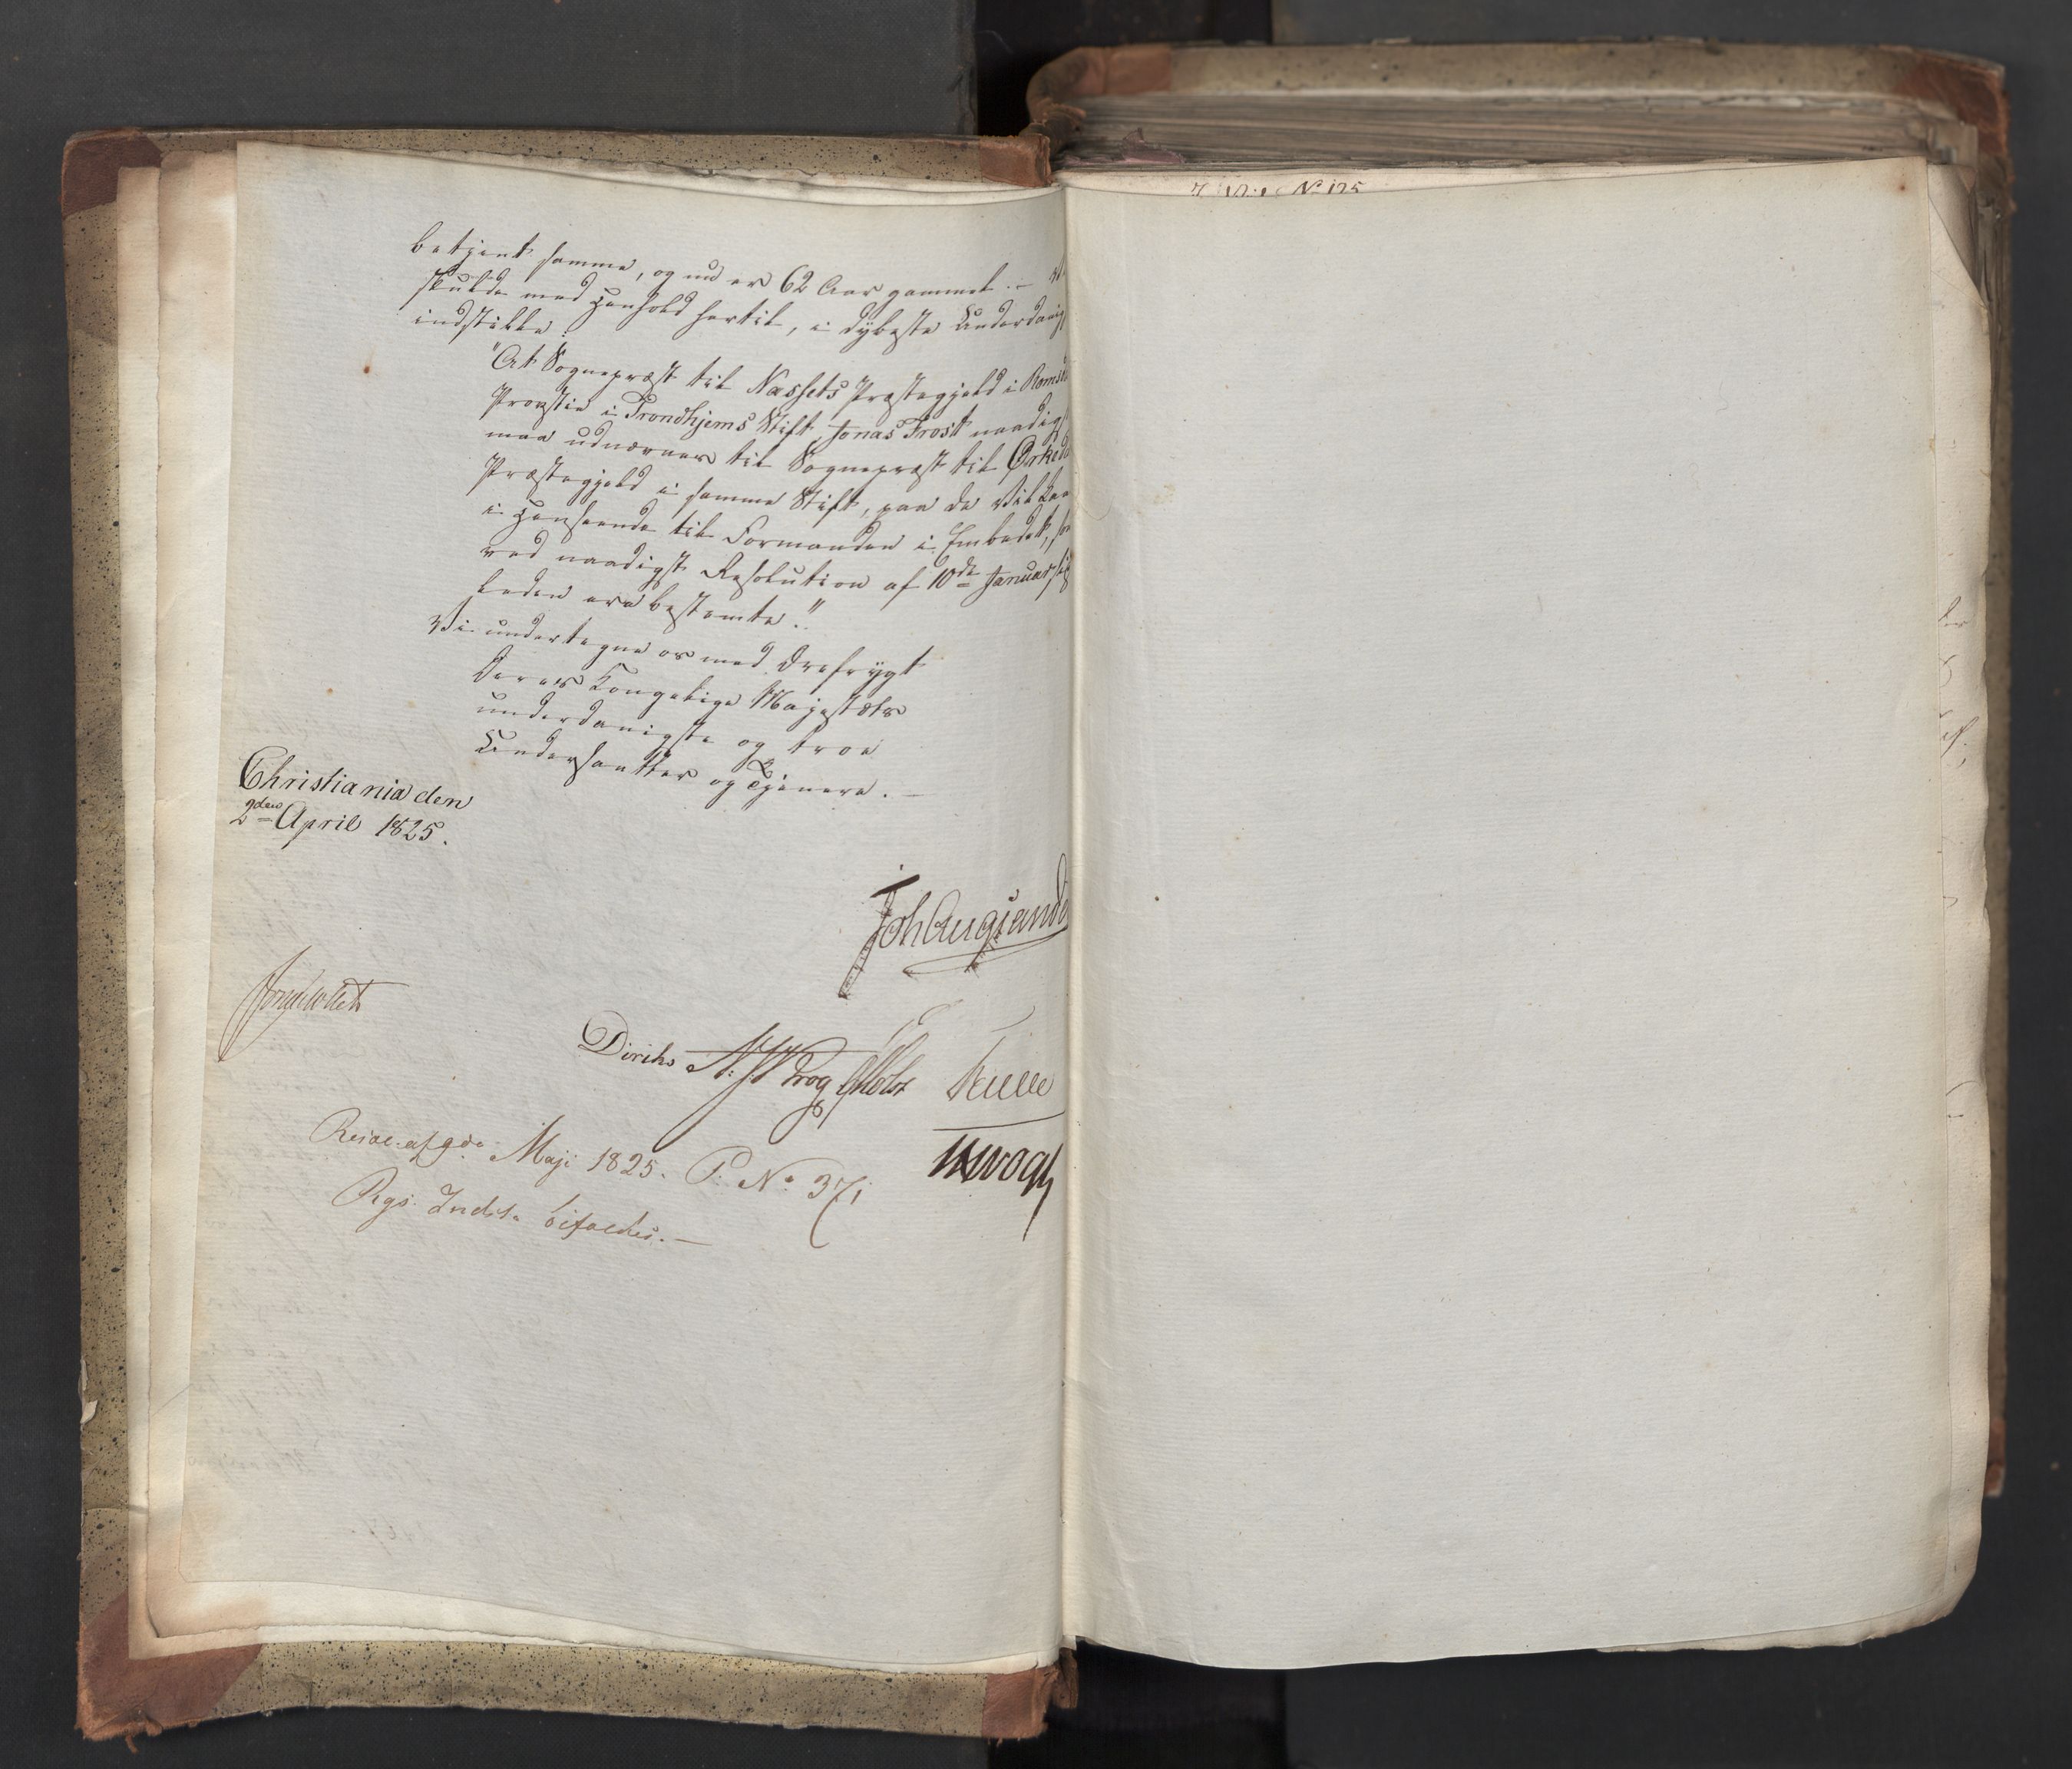 betjent samme, og nu er 62 Aar gammel. – Vi
skulde med Henhold hertil, i dybeste Underdanig
indstille:
"At Sognepræst til Næssets Præstegjeld i Romsd
Provstie i Trondhjems Stift, Jonas Frost naadigst
maa udnævnes til Sognepræst til Ørkeda
Præstegjeld i samme Stift, paa de Vilkaar
i Henseende til Formanden i Embedet, som
ved naadigst Resolution af 10de Januar sid
leden ere bestemte."
Vi undertegne os med Ærefrygt
Deres Kongelige Majestæts
underdanigste og troe
Undersaatter og Tjenere. –
Christiania den
2den April 1825.
Joh Aug Sand
Jonas Collett
Diriks N. J. W. Krog P Motzf Treschow
Resol. af 9de Maji 1825. P. No 371
Rgs. Indst. bifaldes. –
No 125